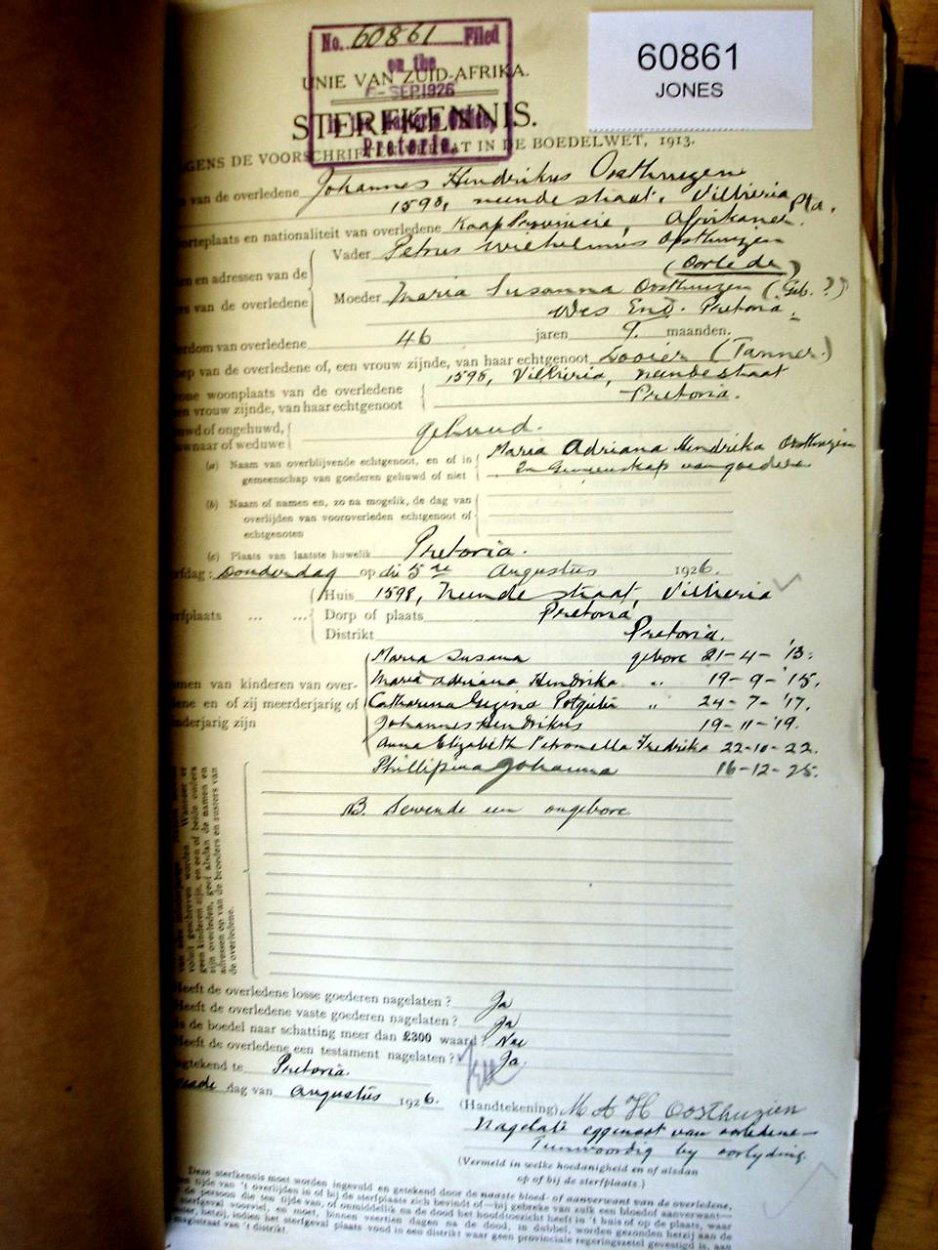 60861
JONES
No. 60861 Filed
on the
6-SEP.1926
Pretoria.
UNIE VAN ZUID-AFRIKA.
STERFKENNIS.
GENS DE VOORSCHRIFTEN VERVAT IN DE BOEDELWET, 1913.
van de overledene Johannes Hendrikus Oosthuizen
1598, neende straat, Villieria Pta.
orteplaats en nationaliteit van overledene Kaap Provincie, Afrikaner.
en adressen van de
rs van de overledene
Vader Petrus Wilhelmus Oosthuizen
(Oorlede)
Moeder Maria Susanna Oosthuizen (Geb. ?)
Wes End. Pretoria.
erdom van overledene 46 jaren 9. maanden.
ep van de overledene of, een vrouw zijnde, van haar echtgenoot Looier (Tanner.)
one woonplaats van de overledene
en vrouw zijnde, van haar echtgenoot
1598, Villieria, neende straat
Pretoria.
uwd of ongehuwd,
wnaar of weduwe
gehuud.
(a) Naam van overblijvende echtgenoot, en of in
gemeenschap van goederen gehuwd of niet
Maria Adriana Hendrika Oosthuizen
In Gemeenskap van goedere
(b) Naam of namen en, zo na mogelik, de dag van
overlijden van vooroverleden echtgenoot of
echtgenoten
(c) Plaats van laatste huwelik Pretoria.
rfdag: Donderdag op die 5de Augustus 1926.
rfplaats ... ...
Huis 1598, Neende straat, Villieria
Dorp of plaats Pretoria
Distrikt Pretoria.
men van kinderen van over-
dene en of zij meerderjarig of
nderjarig zijn
Maria Susana gebore 21-4-'13.
Maria Adriana Hendrika „ 19-9-'15.
Catharina Gezina Potgieter „ 24-7-'17.
Johannes Hendrikus 19-11-'19.
Anna Elizabeth Petronella Fredrika 22-10-22.
Phillipina Johanna 16-12-25.
NB. Sewende een ongebore
geen kinderen zijn, en een of beide ouders
zijn overleden, geef alsdan de namen en
adressen op van de broeders en zusters van
de overledene.
Heeft de overledene losse goederen nagelaten? Ja
Heeft de overledene vaste goederen nagelaten? Ja
Is de boedel naar schatting meer dan £300 waard? Nee
Heeft de overledene een testament nagelaten? Ja
gtekend te Pretoria.
dag van Augustus 1926.
(Handtekening) M A H Oosthuizen
Nagelate eggenoot van oorledene
Teenwoordig by oorlyding.
(Vermeld in welke hoedanigheid en of alsdan
op of bij de sterfplaats.)
Deze sterfkennis moet worden ingevuld en getekend door de naaste bloed- of aanverwant van de overledene,
en tijde van 't overlijden in of bij de sterfplaats zich bevindt of—bij gebreke van zulk een bloedof aanverwant—
de persoon die ten tijde van, of onmiddelik na de dood het hoofdtoezicht heeft in 't huis of op de plaats, waar
sterfgeval voorviel, en moet, binnen veertien dagen na de dood, in dubbel, worden gezonden hetzij aan de
ster, hetzij, indien het sterfgeval plaats vond in een distrikt waar geen provinciale regeringszetel gevestigd is, aan
magistraat van 't distrikt.